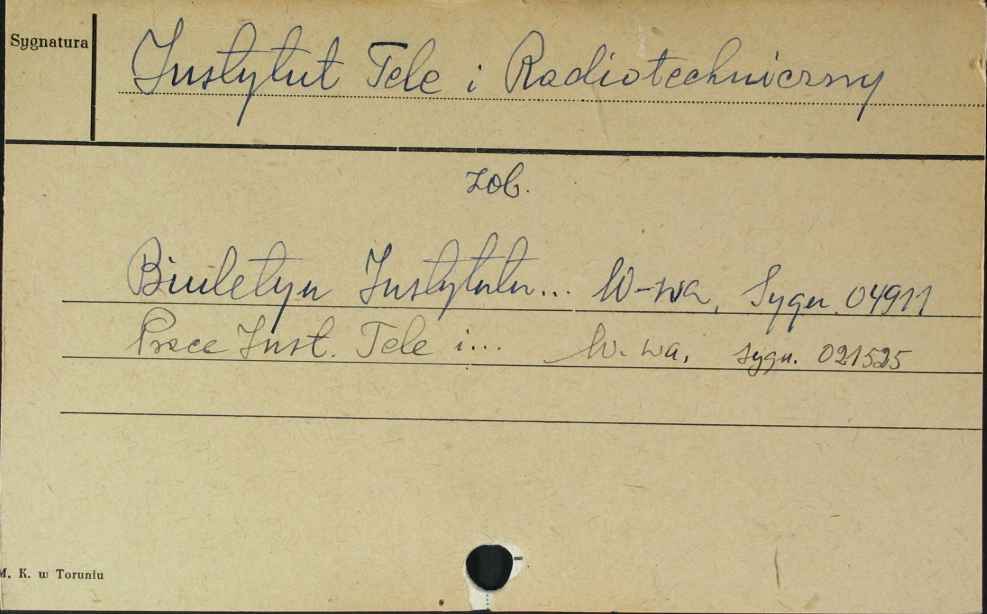 Sygnatura
Instytut Tele i Radiotechniczny
zob.
Biuletyn Instytutu... W-wa, Sygn. 04911
Prace Inst. Tele i... W-wa, sygn. 021525
M. K. w Toruniu